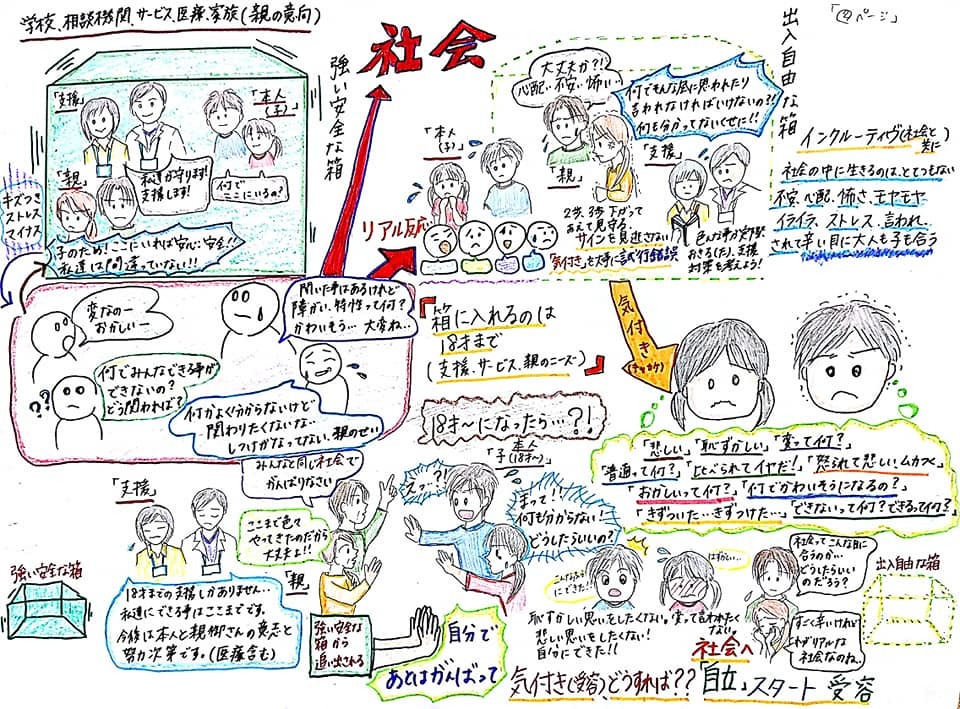 学校、相談機関、サービス、医療、家族(親の意向)
「支援」
「本人
(子)」
「親」
私達が守ります!
支援します!
何で
ここにいるの?
子のため!ここにいれば安心、安全!!
私達は間違っていない!!
キズつき
ストレス
マイナス
強い安全な箱
社会
リアル反応
「本人
(子)」
大丈夫か?!
心配、不安、怖い…
何でそんな風に思われたり
言われなければいけないの?!
何も分かってないくせに!!
「親」
「支援」
2歩、3歩下がって
あえて見守る。
サインを見逃さない!
「気付き」を大事に試行錯誤
支援
対策も考えよう!
出入自由な箱
インクルーティヴ(社会と
共に
社会の中に生きるのは、とてつもない
不安、心配、怖さ、モヤモヤ
イライラ、ストレス、言われ、
されて辛い目に大人も子も合う
変なのー
おかしいー
聞いた事はあるけれど
障がい、特性って何?
かわいそう…大変ね…
何でみんなできる事が
できないの?
どう関われば?
??
何かよく分からないけど
関わりたくないな…
しつけがなってない、親のせい
『箱に入れるのは
18才まで
(支援、サービス、親のニーズ)』
気付き
(キッカケ)
18才~になったら…?!
「悲しい」「恥ずかしい」「変って何?」
「普通って何?」「比べられてイヤだ!」「怒られて悲しい、ムカつく」
「おかしいって何?」「何でかわいそうになるの?」
「きずついた…きずつけた…」「できないって何?できるって何?」
「支援」
みんなと同じ社会で
がんばりなさい
ここまで色々
やってきたのだから
大丈夫!!
「親」
本人
「子(18才~)」
えっ…?!
まって!!
何も分からない!
どうしたらいいの?
強い安全な箱
18才までの支援しかありません…
私達にできる事はここまでです。
今後は本人と親御さんの意志と
努力次第です。(医療含む)
強い安全な
箱から
追い出される
自分で
あとはがんばって
こんな風に
にできた!
はずかしい…
恥ずかしい思いをしたくない。変って言われたくない。
悲しい思いをしたくない!
自分にできた!!
社会ってこんな目に
合うのか…
どうしたらいい
のだろう?
すごく辛いけれど
これがリアルな
社会なのね…
出入自由な箱
気付き(受容)、どうすれば??
社会へ
「自立」スタート 受容